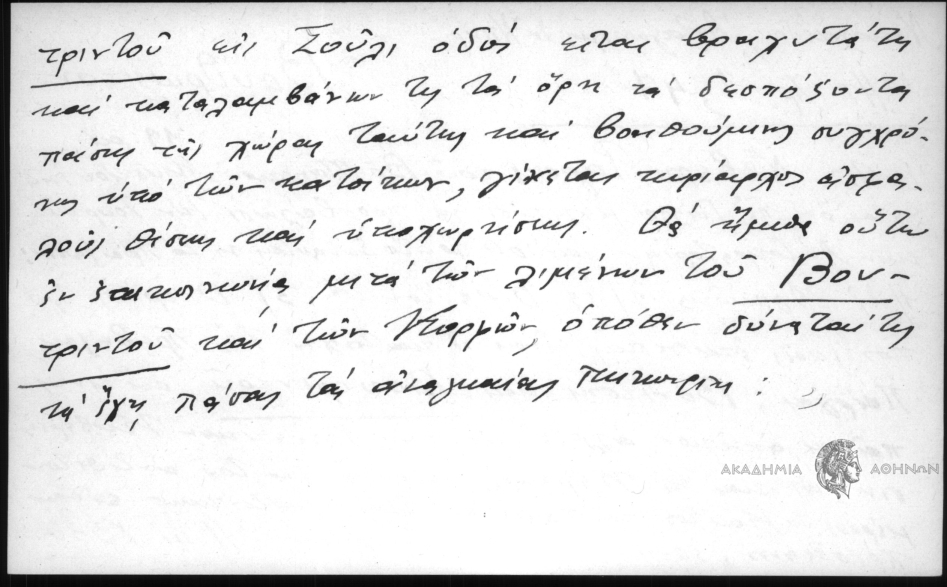 τριντοῦ εἰς Σοῦλι ὁδός εἶναι βραχυτάτη
καί καταλαμβάνων τις τά ὄρη τά δεσπόζοντα
πάσης τῆς χώρας ταύτης καί βοηθούμενος συγχρό-
νως ὑπό τῶν κατοίκων, γίνεται κυρίαρχος ἀσφα-
λοῦς θέσεως καί ὑποχωρήσεως. Θά εἴμεθα οὕτω
ἐν ἐπικοινωνίᾳ μετά τῶν λιμένων τοῦ Βου-
τριντοῦ καί τῶν , ὁπόθεν δύναταί τις
νά ἔχῃ πάσας τάς ἀναγκαίας :
ΑΚΑΔΗΜΙΑ ΑΘΗΝΩΝ